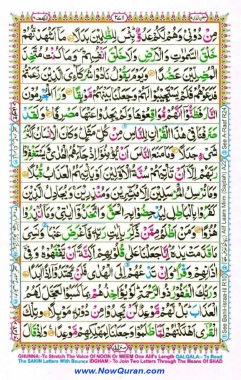 مِنْ دُوْنِىْ وَهُمْ لَكُمْ عَدُوٌّ بِئْسَ لِلظّٰلِمِيْنَ بَدَلًا مَآ اَشْهَدْتُّهُمْ
خَلْقَ السَّمٰوٰتِ وَالْاَرْضِ وَلَا خَلْقَ اَنْفُسِهِمْ وَمَا كُنْتُ مُتَّخِذَ
الْمُضِلِّيْنَ عَضُدًا وَيَوْمَ يَقُوْلُ نَادُوْا شُرَكَآءِىَ الَّذِيْنَ زَعَمْتُمْ
فَدَعَوْهُمْ فَلَمْ يَسْتَجِيْبُوْا لَهُمْ وَجَعَلْنَا بَيْنَهُمْ مَّوْبِقًا وَرَاَ الْمُجْرِمُوْنَ
النَّارَ فَظَنُّوْٓا اَنَّهُمْ مُّوَاقِعُوْهَا وَلَمْ يَجِدُوْا عَنْهَا مَصْرِفًا وَلَقَدْ
صَرَّفْنَا فِىْ هٰذَا الْقُرْاٰنِ لِلنَّاسِ مِنْ كُلِّ مَثَلٍ وَكَانَ الْاِنْسَانُ اَكْثَرَ
شَىْءٍ جَدَلًا وَمَا مَنَعَ النَّاسَ اَنْ يُّؤْمِنُوْٓا اِذْ جَآءَهُمُ الْهُدٰى وَيَسْتَغْفِرُوْا
رَبَّهُمْ اِلَّآ اَنْ تَاْتِيَهُمْ سُنَّةُ الْاَوَّلِيْنَ اَوْ يَاْتِيَهُمُ الْعَذَابُ قُبُلًا
وَمَا نُرْسِلُ الْمُرْسَلِيْنَ اِلَّا مُبَشِّرِيْنَ وَمُنْذِرِيْنَ وَيُجَادِلُ الَّذِيْنَ
كَفَرُوْا بِالْبَاطِلِ لِيُدْحِضُوْا بِهِ الْحَقَّ وَاتَّخَذُوْٓا اٰيٰتِىْ وَمَآ اُنْذِرُوْا
هُزُوًا وَمَنْ اَظْلَمُ مِمَّنْ ذُكِّرَ بِاٰيٰتِ رَبِّهٖ فَاَعْرَضَ عَنْهَا وَنَسِىَ
مَا قَدَّمَتْ يَدٰهُ اِنَّا جَعَلْنَا عَلٰى قُلُوْبِهِمْ اَكِنَّةً اَنْ يَّفْقَهُوْهُ وَفِىْٓ
اٰذَانِهِمْ وَقْرًا وَاِنْ تَدْعُهُمْ اِلَى الْهُدٰى فَلَنْ يَّهْتَدُوْٓا اِذًا اَبَدًا
وَرَبُّكَ الْغَفُوْرُ ذُو الرَّحْمَةِ لَوْ يُؤَاخِذُهُمْ بِمَا كَسَبُوْا لَعَجَّلَ لَهُمُ
الْعَذَابَ بَلْ لَّهُمْ مَّوْعِدٌ لَّنْ يَّجِدُوْا مِنْ دُوْنِهٖ مَوْئِلًا وَتِلْكَ
الْقُرٰٓى اَهْلَكْنٰهُمْ لَمَّا ظَلَمُوْا وَجَعَلْنَا لِمَهْلِكِهِمْ مَّوْعِدًا وَاِذْ قَالَ
GHUNNA:-To Stretch The Voice Of NOON Or MEEM One Alif's Length QALQALA:- To Read
The SAKIN Letters With Bounce IDGHAM:- To Join Two Letters Through The Means Of SHAD
www.NowQuran.com